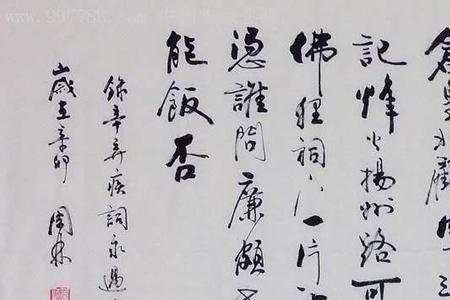 倉皇北顧四
記烽火揚州路可
佛狸祠下一片
憑誰問廉頗
能飯否
錄辛弃疾詞永遇
歲在辛卯 周林